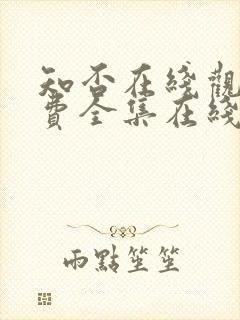 知否在綫觀
費全集在綫
雨點笙笙